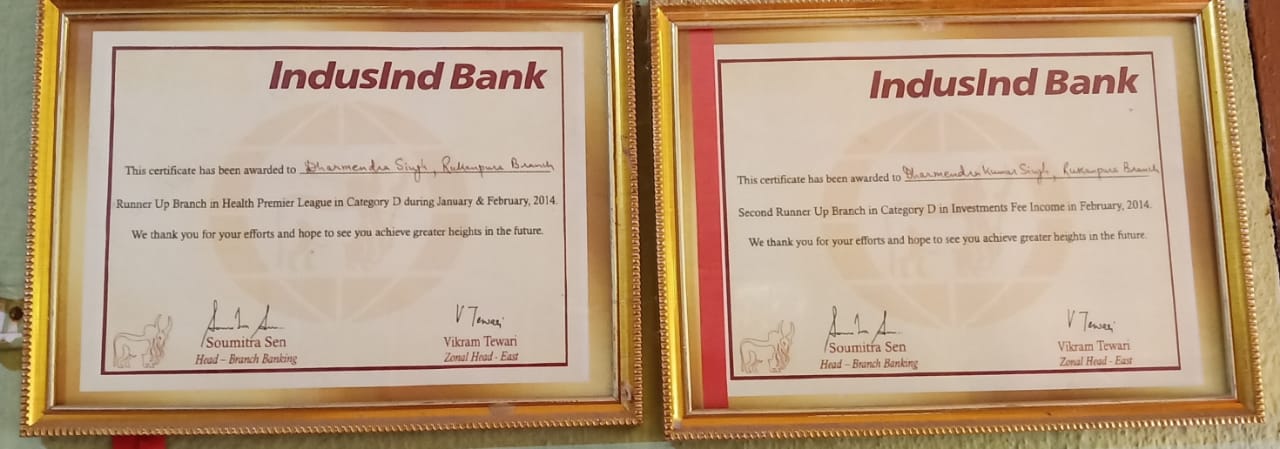 IndusInd Bank
This certificate has been awarded to Dharmendra Singh, Rukanpura Branch
Runner Up Branch in Health Premier League in Category D during January & February, 2014.
We thank you for your efforts and hope to see you achieve greater heights in the future.
Soumitra Sen
Head – Branch Banking
V Tewari
Vikram Tewari
Zonal Head - East
IndusInd Bank
This certificate has been awarded to Dharmendra Kumar Singh, Rukanpura Branch
Second Runner Up Branch in Category D in Investments Fee Income in February, 2014.
We thank you for your efforts and hope to see you achieve greater heights in the future.
Soumitra Sen
Head – Branch Banking
V Tewari
Vikram Tewari
Zonal Head - East